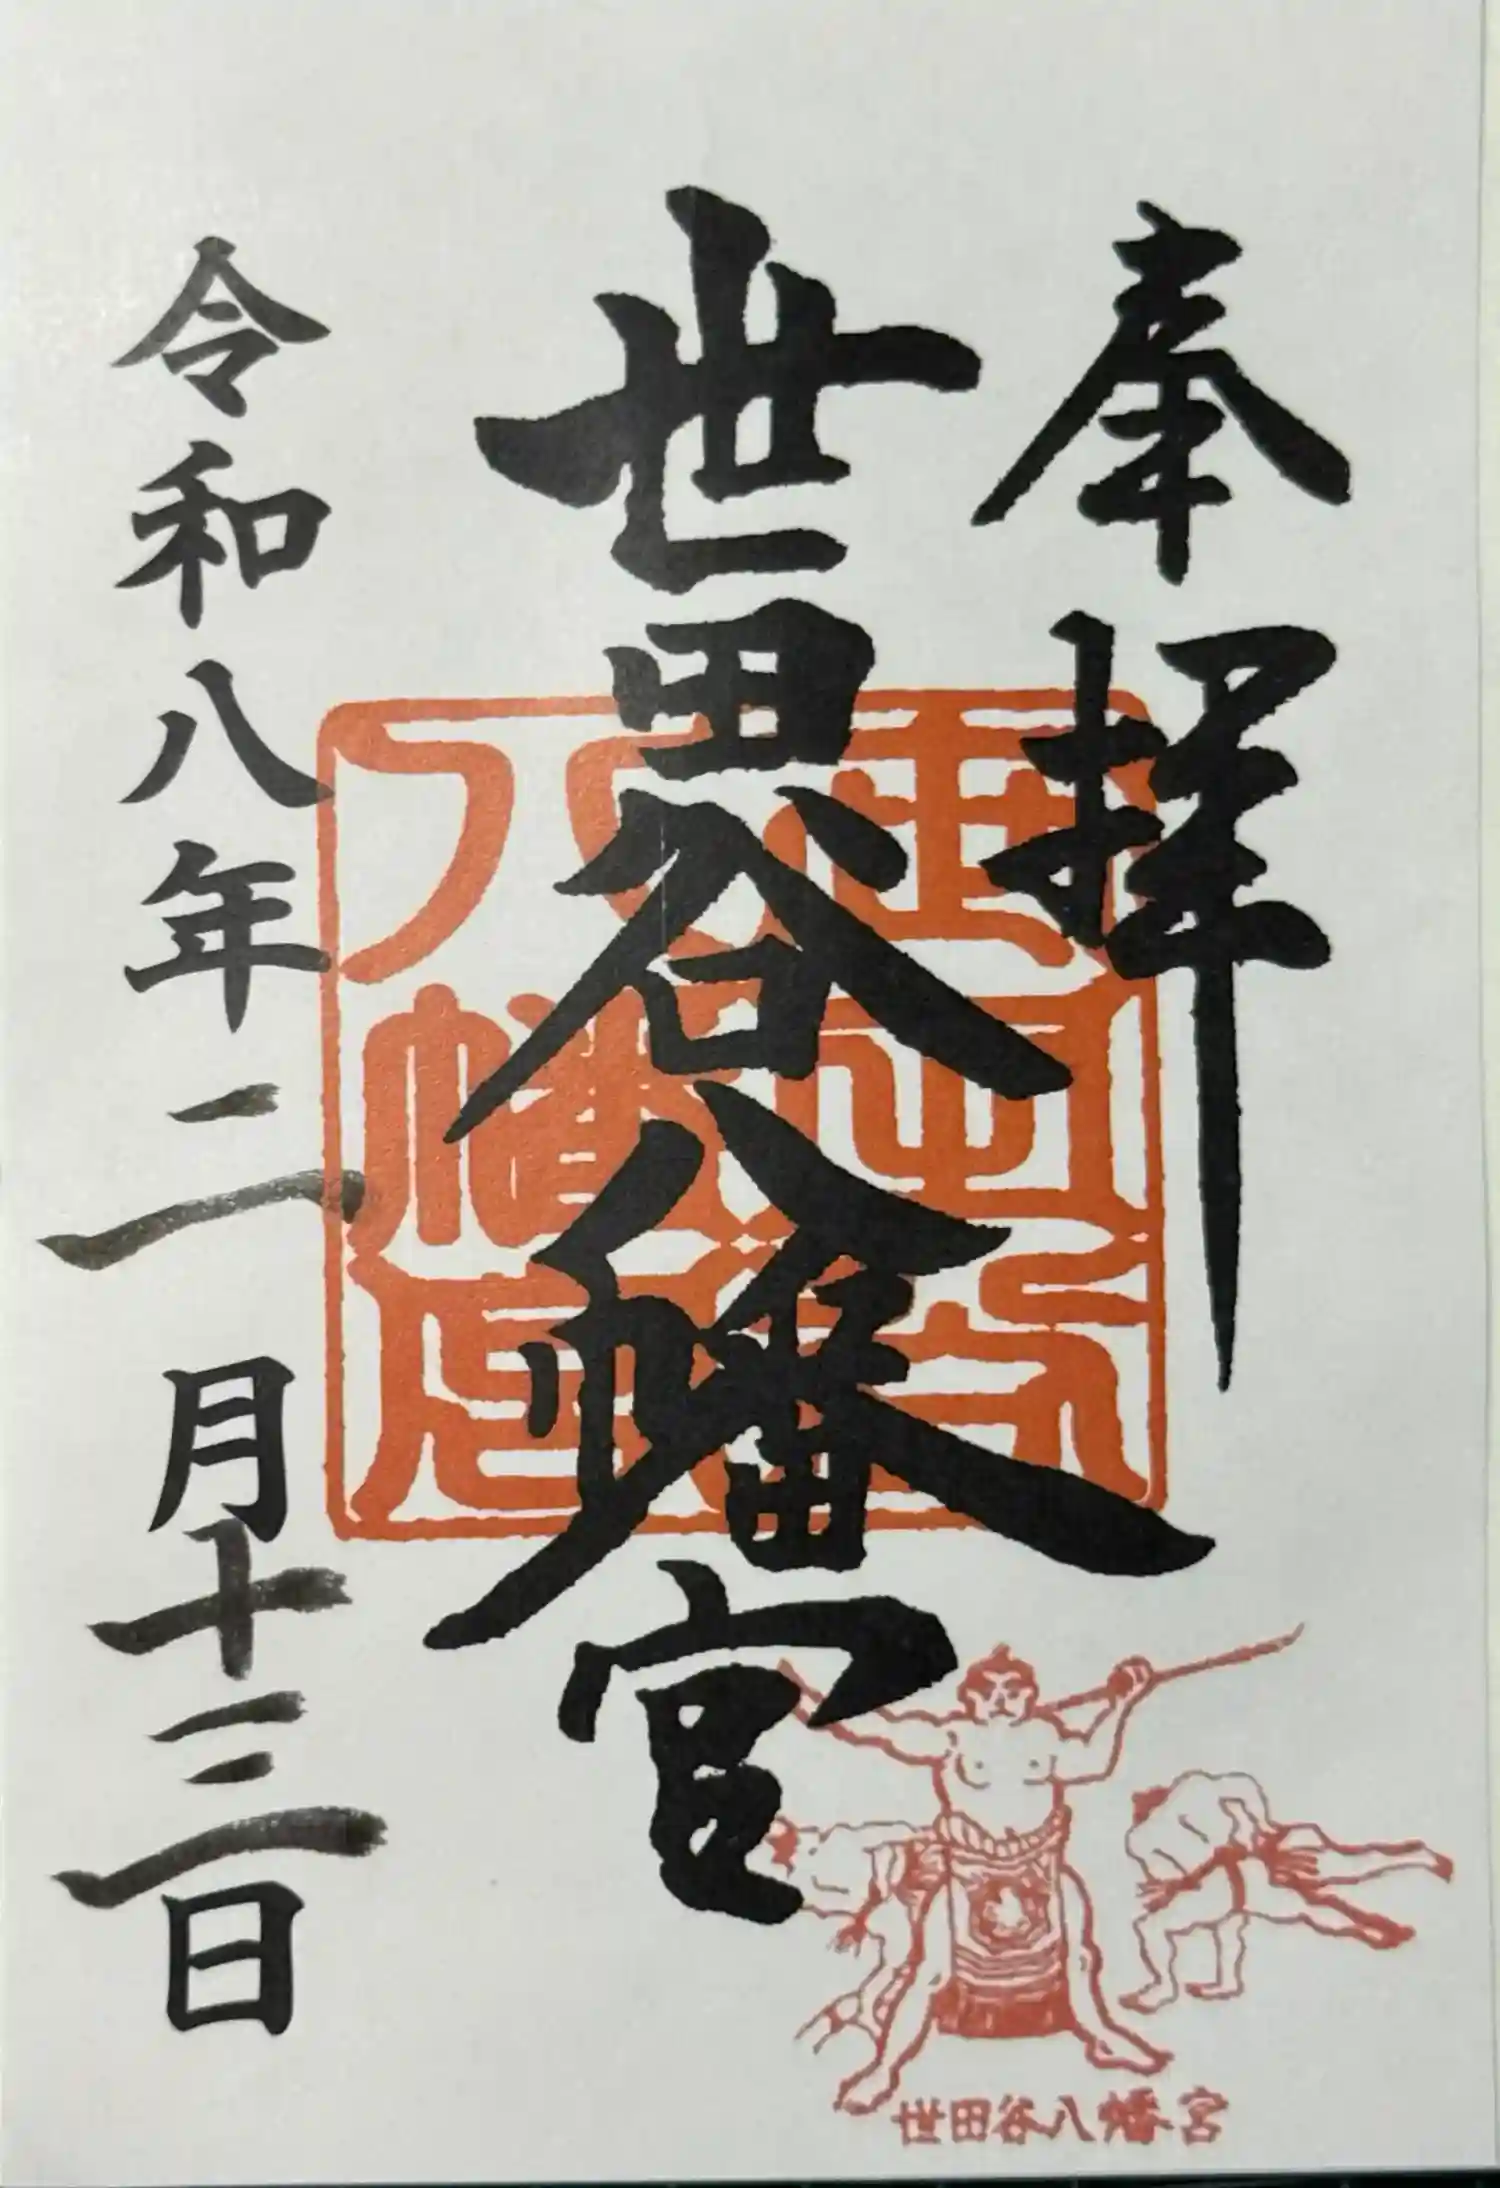 奉拝
世田谷八幡宮
世田谷八幡宮
令和八年二月十三日
世田谷八幡宮